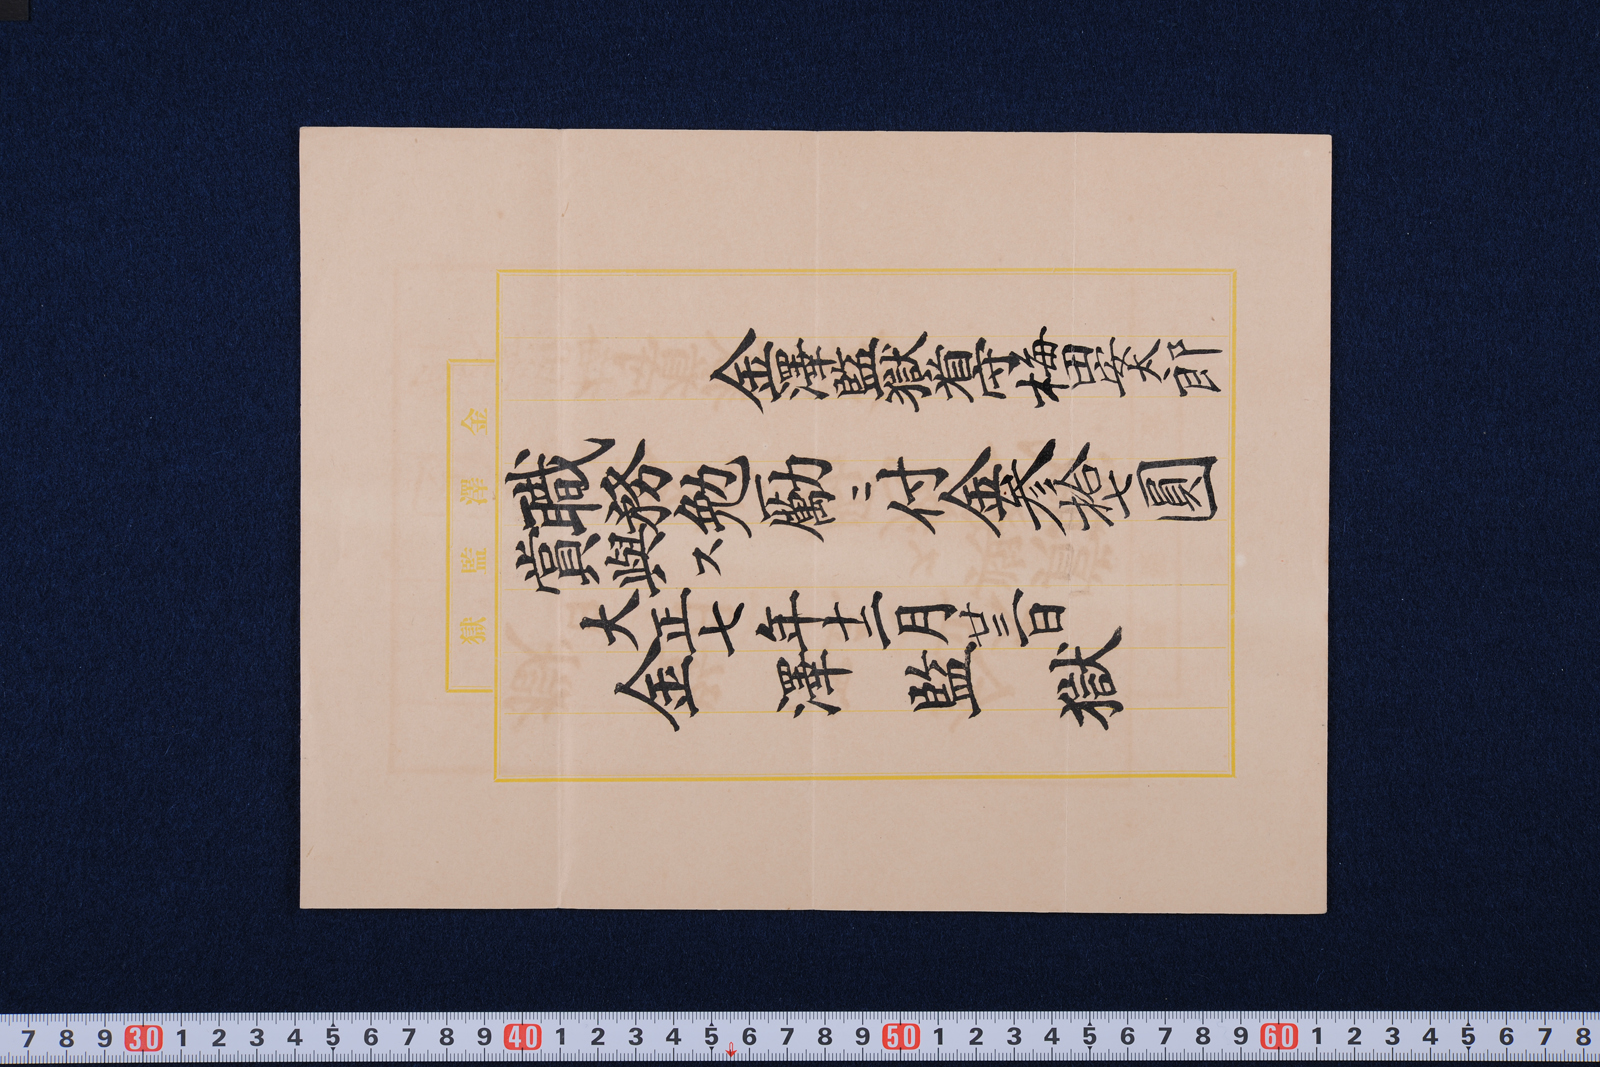 金澤監獄看守梅田安太郎
職務勉勵ニ付金参拾七圓
賞與ス
大正七年十二月廿三日
金澤監獄
金澤監獄
7 8 9 30 1 2 3 4 5 6 7 8 9 40 1 2 3 4 5 6 7 8 9 50 1 2 3 4 5 6 7 8 9 60 1 2 3 4 5 6 7 8